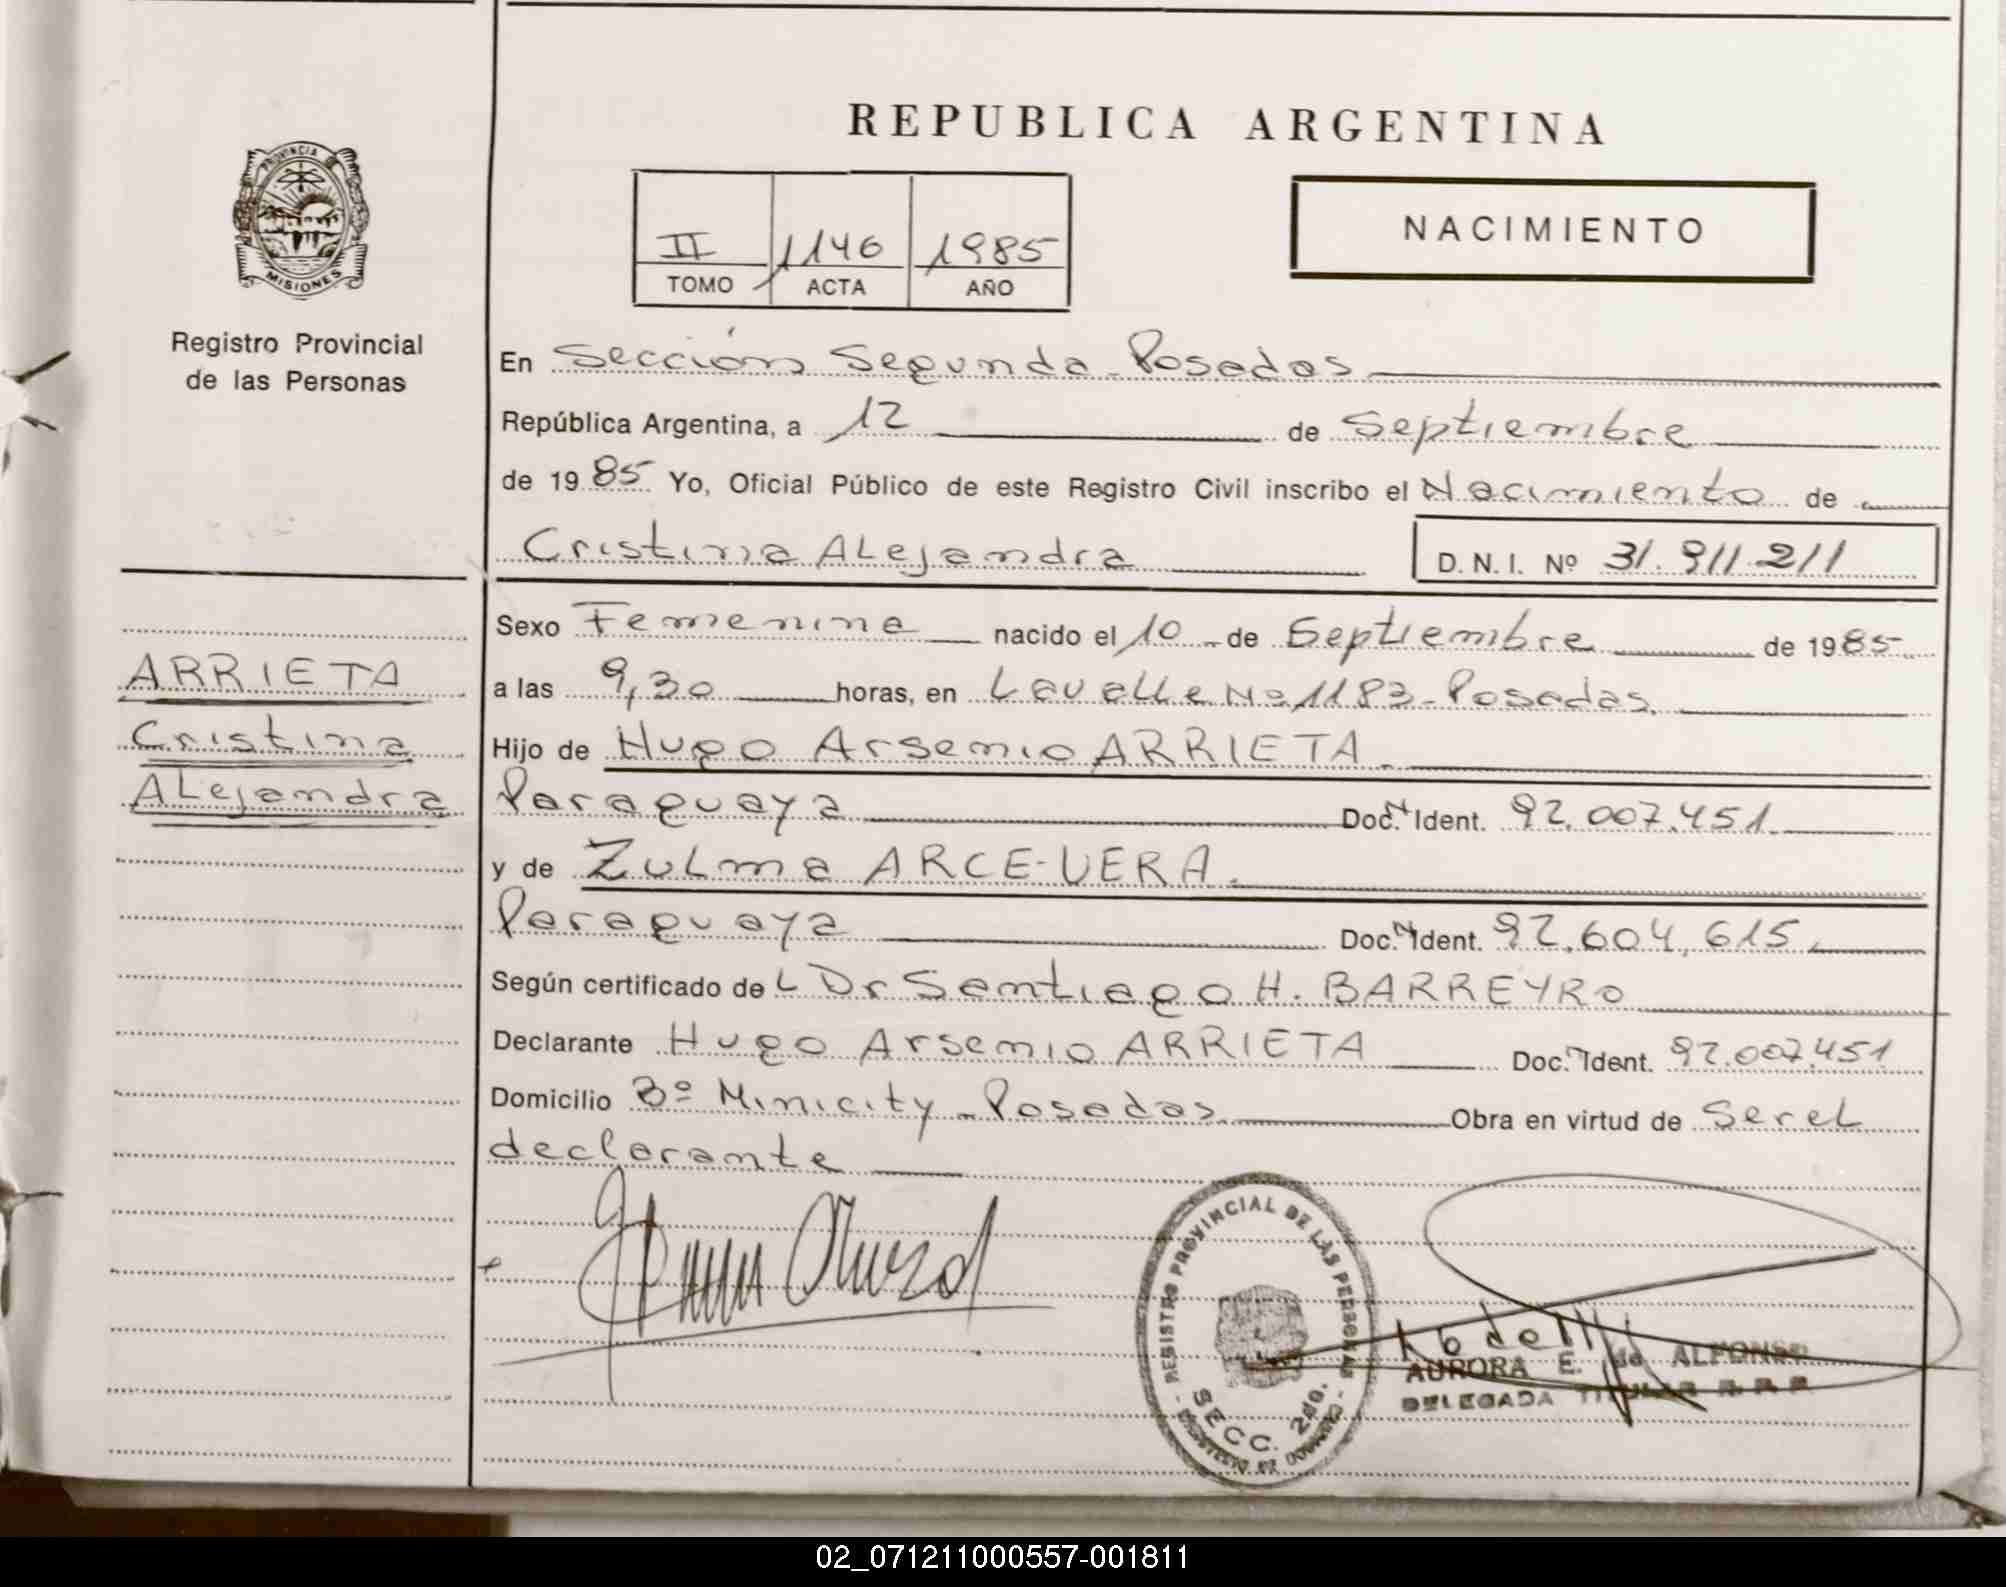 REPUBLICA ARGENTINA
PROVINCIA DE
MISIONES
Registro Provincial
de las Personas
II 1146 1985
TOMO ACTA AÑO
NACIMIENTO
En Sección Segunda - Posadas
República Argentina, a 12 de Septiembre
de 1985 Yo, Oficial Público de este Registro Civil inscribo el Nacimiento de
Cristina ALejandra D. N. I. Nº 31.911.211
ARRIETA
Cristina
ALejandra
Sexo Femenina nacido el 10 - de Septiembre de 1985
a las 9,30 horas, en LavaLLe No 1183 - Posadas.
Hijo de Hugo Arsenio ARRIETA.
Paraguaya Doc. N Ident. 92.007.451.
y de ZuLma ARCE-VERA.
Paraguaya Doc. N Ident. 92.604.615.
Según certificado de L Dr Santiago H. BARREYRO
Declarante Hugo Arsenio ARRIETA Doc. N Ident. 92.007.451
Domicilio Bº Minicity - Posadas Obra en virtud de Ser eL
declarante
REGISTRO PROVINCIAL DE LAS PERSONAS
SECC. 2da.
AURORA E. de ALFONSO
DELEGADA TITULAR R. P. P.
02_071211000557-001811